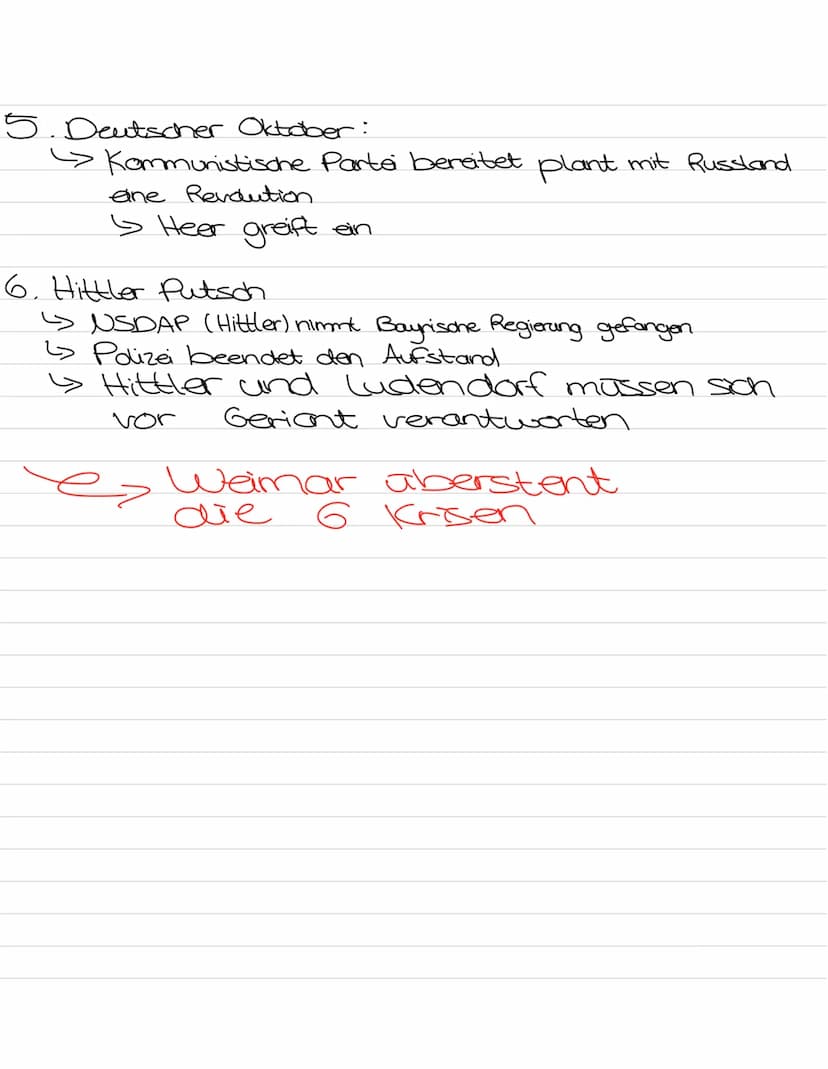 5. Deutscher Oktober:
↳ Kommunistische Partei bereitet plant mit Russland
eine Revolution
↳ Heer greift ein
6. Hittler Putsch
↳ NSDAP (Hittler) nimmt Bayrische Regierung gefangen
↳ Polizei beendet den Aufstand
↳ Hittler und Ludendorf müssen sich
vor Gericht verantworten
↳ Weimar übersteht
die 6 Krisen